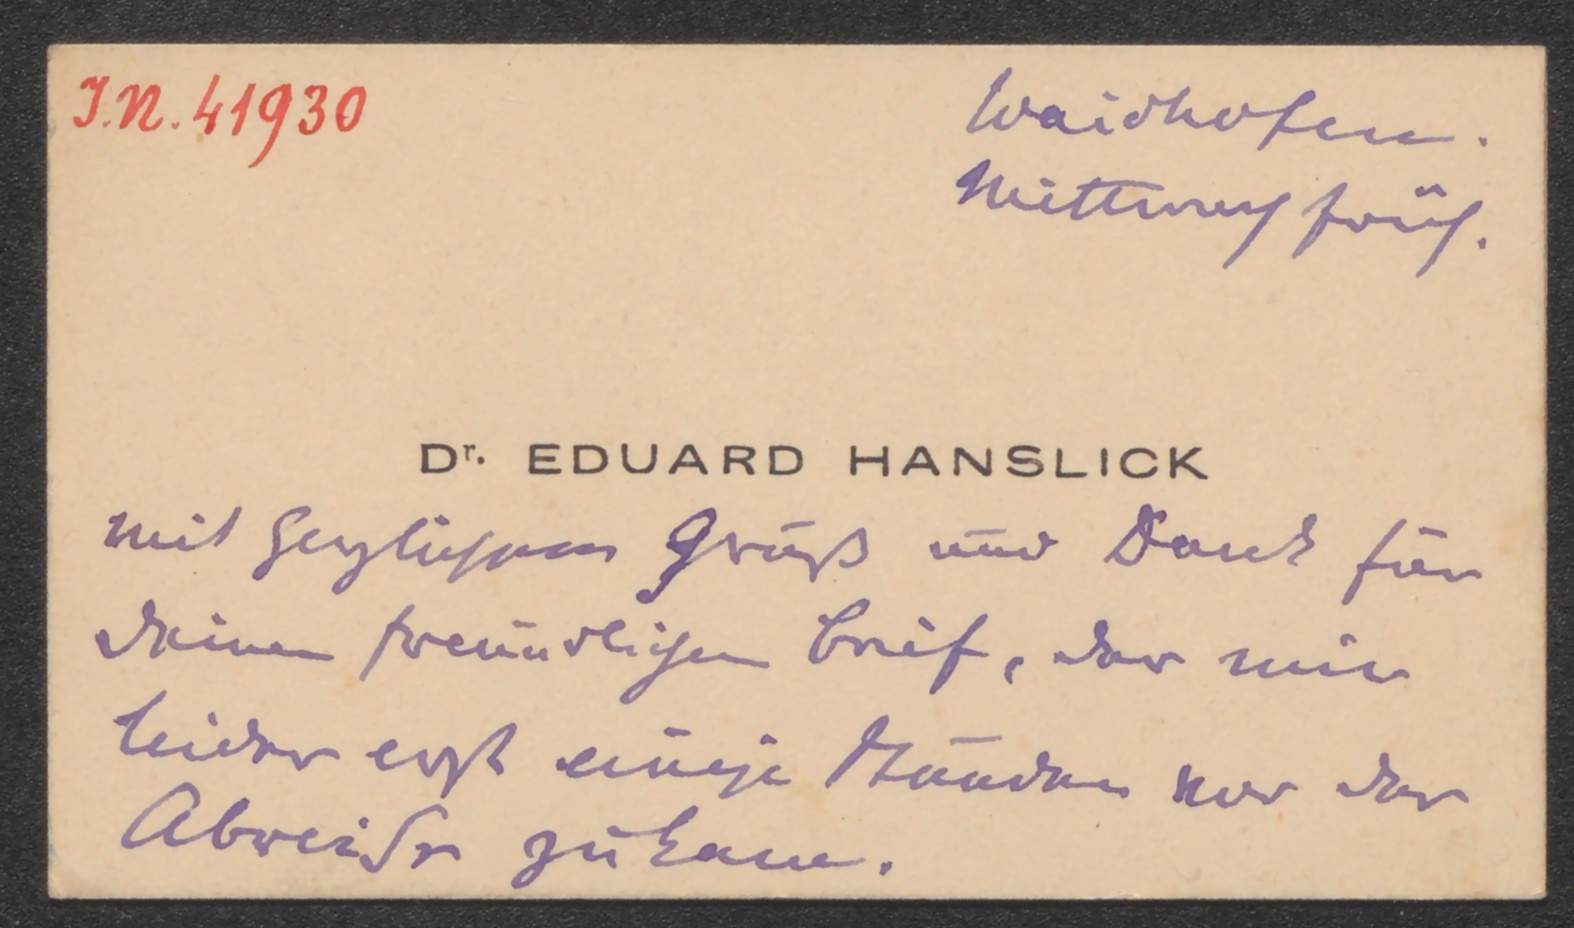 I.N. 41930
Waidhofen.
Mittwoch früh.
Dr. EDUARD HANSLICK
mit herzlichem Gruß und Dank für
Deinen freundlichen Brief, der mir
leider erst einige Stunden vor der
Abreise zukam.